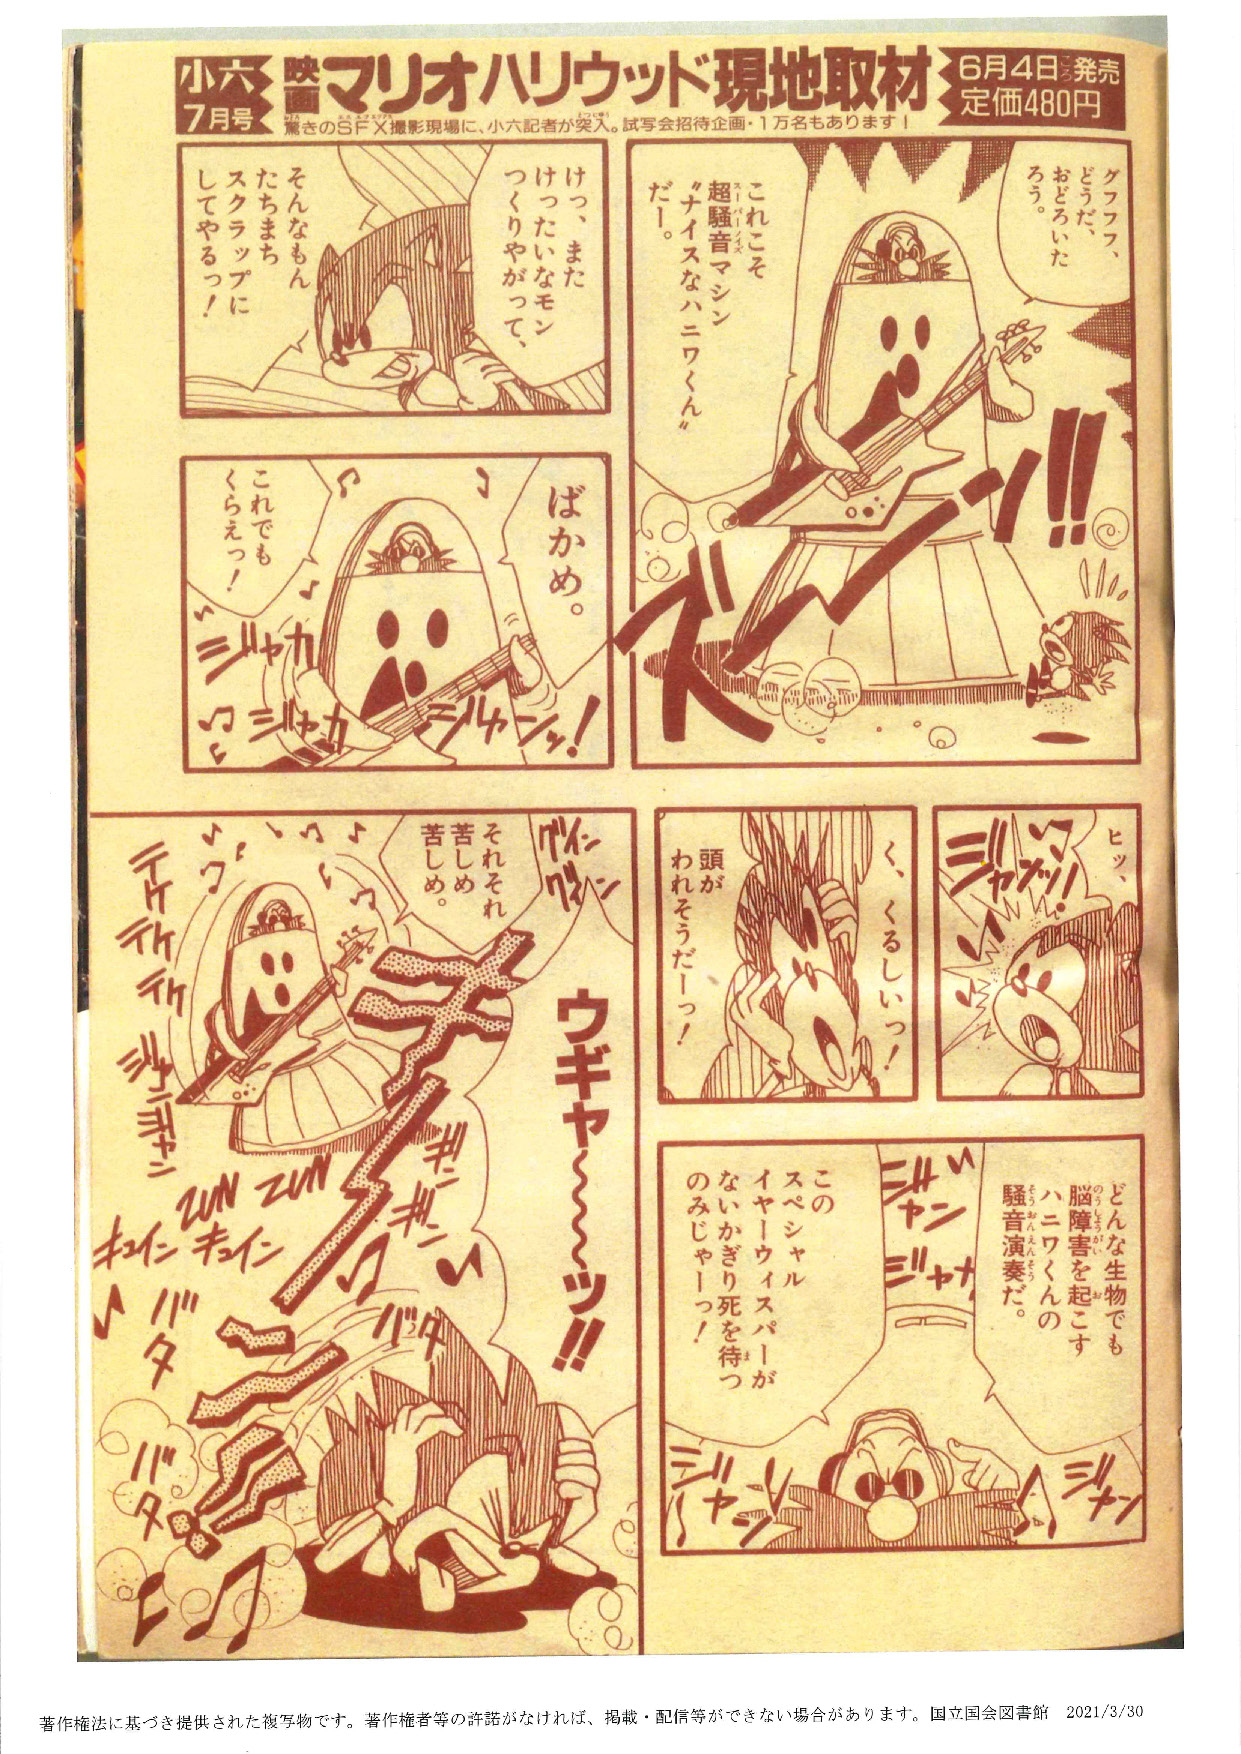 小六
7月号
映画マリオハリウッド現地取材
驚きのSFX撮影現場に、小六記者が突入。試写会招待企画・1万名もあります！
6月4日ごろ発売
定価480円
グフフフ、
どうだ、
おどろいた
ろう。
これこそ
超騒音マシン
スーパーノイズ
〝ナイスなハニワくん〟
だー。
ズーンン!!
けっ、また
けったいなモン
つくりやがって、
そんなもん
たちまち
スクラップに
してやるっ！
ばかめ。
これでも
くらえっ！
ジャカ
ジャカ
ジャンッ！
ヒッ、
ジャンッ！
く、くるしいっ！
頭が
われそうだーっ！
どんな生物でも
脳障害を起こす
のうしょうがい
お
ハニワくんの
騒音演奏だ。
そうおんえんそう
このスペシャル
イヤーウィスパーが
ないかぎり死を待つ
ま
のみじゃーっ！
ジャン
ジャカ
ジャン
ジャン
グイン
グイーン
それそれ
苦しめ
苦しめ。
テケ
テケ
テケ
ジャン
ジャン
ウギャ～～～～ッ!!
ギン
ギン
ZUN ZUN
キュイン キュイン
バタ
バタ
バタ
著作権法に基づき提供された複写物です。著作権者等の許諾がなければ、掲載・配信等ができない場合があります。国立国会図書館 2021/3/30